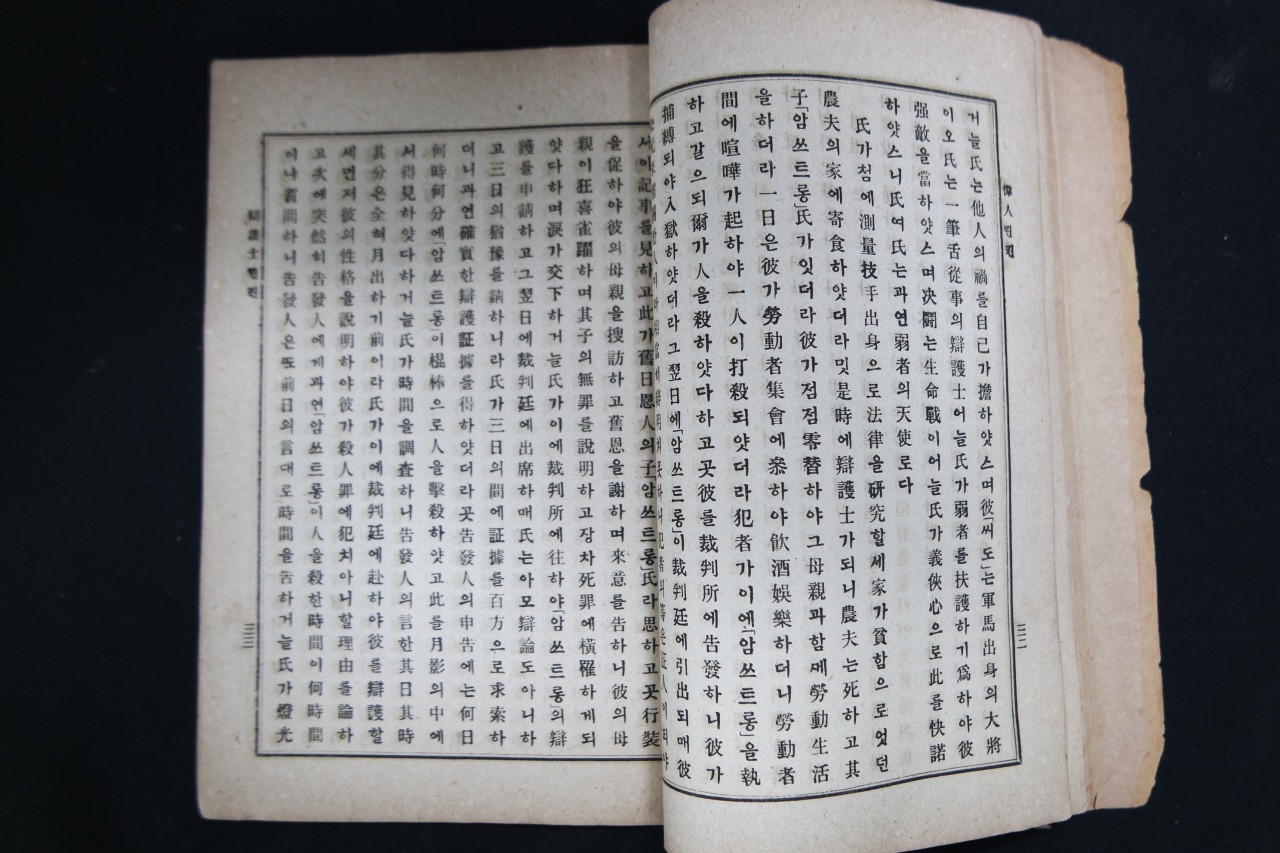 偉人번전
거늘氏는他人의禍를自己가擔하얏스며彼「씨도」는軍馬出身의大將
이오氏는一筆舌從事의辯護士어늘氏가弱者를扶護하기爲하야彼
强敵을當하얏스며決鬪는生命戰이어늘氏가義俠心으로此를快諾
하얏스니氏여氏는果연弱者의天使로다
氏가첨에測量技手出身으로法律을硏究할세家가貧함으로엇던
農夫의家에寄食하얏더라밋是時에辯護士가되니農夫는死하고其
子「암쓰트롱」氏가잇더라彼가점점零替하야그母親과함께勞動生活
을하더라一日은彼가勞動者集會에參하야飮酒娛樂하더니勞動者
間에喧嘩가起하야一人이打殺되얏더라犯者가이에「암쓰트롱」을執
하고갈으되爾가人을殺하얏다하고곳彼를裁判所에告發하니彼가
捕縛되야入獄하얏더라그翌日에「암쓰트롱」이裁判廷에引出되매彼
三二
서이記事를見하고此가舊日恩人의子「암쓰트롱」氏라思하고곳行裝
을促하야彼의母親을搜訪하고舊恩을謝하며來意를告하니彼의母
親이狂喜雀躍하며其子의無罪를說明하고장차死罪에橫罹하게되
얏다하며淚가交下하거늘氏가이에裁判所에往하야「암쓰트롱」의辯
護를申請하고그翌日에裁判廷에出席하매氏는아모辯論도아니하
고三日의猶豫를請하니라氏가三日의間에証據를百方으로求索하
더니과연確實한辯護証據를得하얏더라곳告發人의申告에는何日
何時何分에「암쓰트롱」이棍棒으로人을擊殺하얏고此를月影의中에
서得見하얏다하거늘氏가時間을調査하니告發人의言한其日其時
其分은全혀月出하기前이라氏가이에裁判廷에赴하야彼를辯護할
세먼저彼의性格을說明하야彼가殺人罪에犯치아니할理由를論하
고次에突然히告發人에게과연「암쓰트롱」이人을殺한時間이何時間
이냐質問하니告發人은또前日의言대로時間을告하거늘氏가燈光
三三